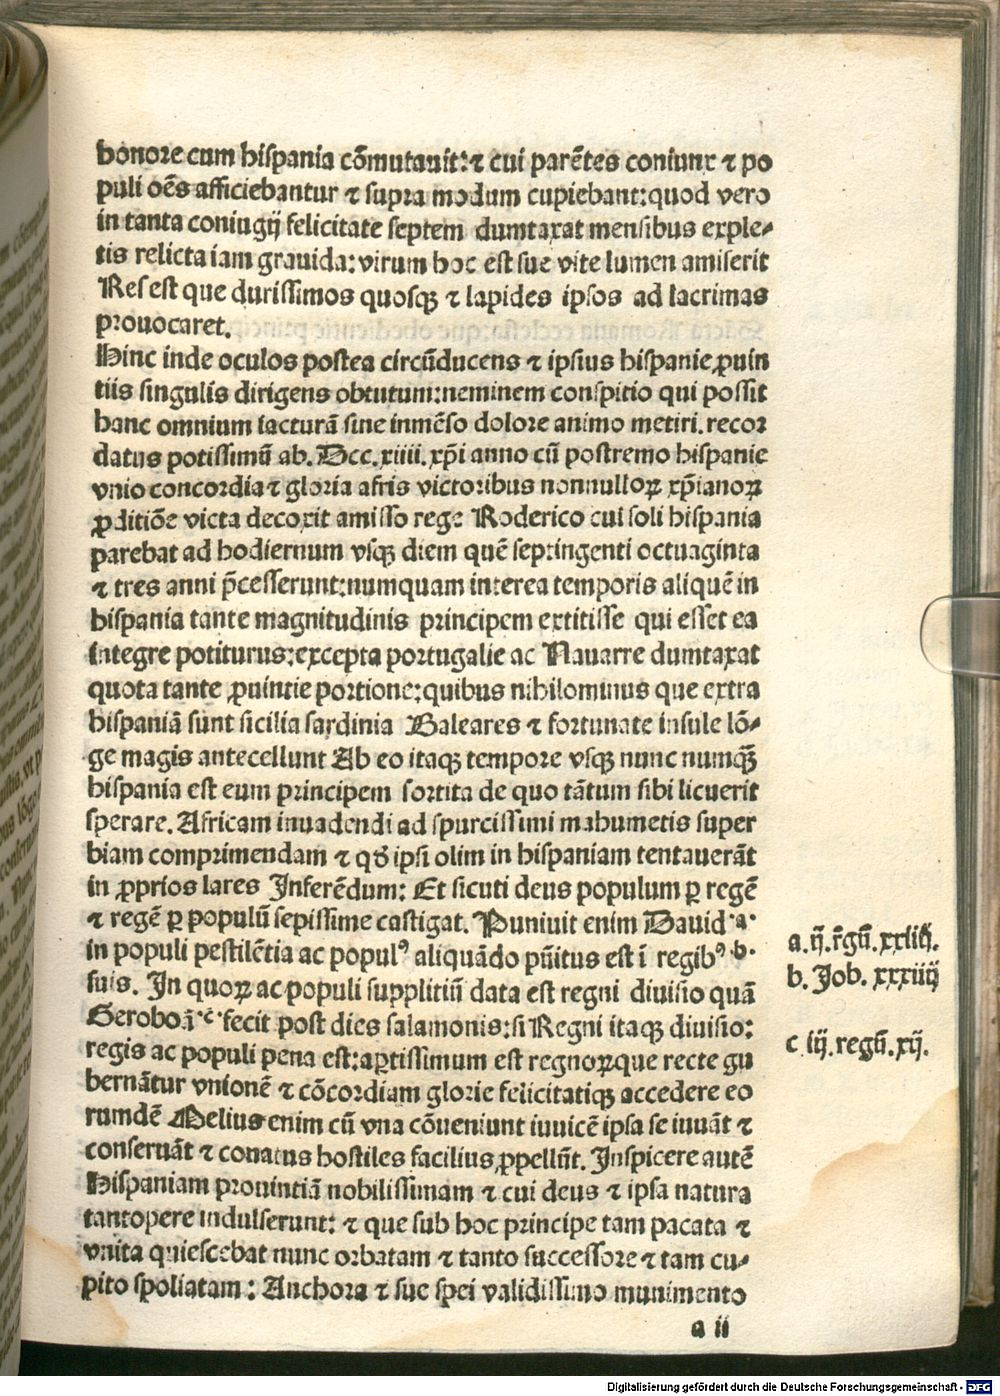 honore cum hispania cōmutauit: ⁊ cui parētes coniunx ⁊ po
puli oēs afficiebantur ⁊ supra modum cupiebant: quod vero
in tanta coniugij felicitate septem dumtaxat mensibus exple-
tis relicta iam grauida: virum hoc est sue vite lumen amiserit
Res est que durissimos quosqꝫ ⁊ lapides ipsos ad lacrimas
prouocaret.
Hinc inde oculos postea circūducens ⁊ ipsius hispanie ꝓuin
tiis singulis dirigens obtutum: neminem conspitio qui possit
hanc omnium iacturā sine inmēso dolore animo metiri. recor
datus potissimū ab. Dcc. xiiii. xp̄i anno cū postremo hispanie
vnio concordia ⁊ gloria afris victoribus nonnulloꝝ xp̄ianoꝝ
ꝓditiōe victa decoxit amisso rege Roderico cui soli hispania
parebat ad hodiernum vsqꝫ diem quē septingenti octuaginta
⁊ tres anni p̄cesserunt: numquam interea temporis aliquē in
hispania tante magnitudinis principem extitisse qui esset ea
integre potiturus: excepta portugalie ac Nauarre dumtaxat
quota tante ꝓuintie portione: quibus nihilominus que extra
hispaniā sunt sicilia sardinia Baleares ⁊ fortunate insule lō-
ge magis antecellunt Ab eo itaqꝫ tempore vsqꝫ nunc numqꝫ̄
hispania est eum principem sortita de quo tātum sibi licuerit
sperare. Africam inuadendi ad spurcissimi mahumetis super
biam comprimendam ⁊ qđ ipsi olim in hispaniam tentauerāt
in ꝓprios lares Inferēdum: Et sicuti deus populum ꝑ regē
⁊ regē ꝑ populū sepissime castigat. Puniuit enim Dauid ·a·
in populi pestilētia ac popul⁹ aliquādo pūitus est ī regib⁹ ·b·
suis. In quoꝝ ac populi supplitiū data est regni diuisio quā
Geroboā ·c· fecit post dies salamonis: si Regni itaqꝫ diuisio:
regis ac populi pena est: aꝑtissimum est regnoꝝque recte gu
bernātur vnionē ⁊ cōcordiam glorie felicitatiqꝫ accedere eo
rumdē Melius enim cū vna cōueniunt iuuicē ipsa se iuuāt ⁊
conseruāt ⁊ conatus hostiles facilius ꝓpellūt. Inspicere autē
Hispaniam prouintiā nobilissimam ⁊ cui deus ⁊ ipsa natura
tantopere indulserunt: ⁊ que sub hoc principe tam pacata ⁊
vnita quiescebat nunc orbatam ⁊ tanto successore ⁊ tam cu-
pito spoliatam: Anchora ⁊ sue spei validissimo munimento
a ii
a. ij. r̄gū. xxiiij.
b. Job. xxxiiij
c iij. regū. xij.
Digitalisierung gefördert durch die Deutsche Forschungsgemeinschaft - DFG